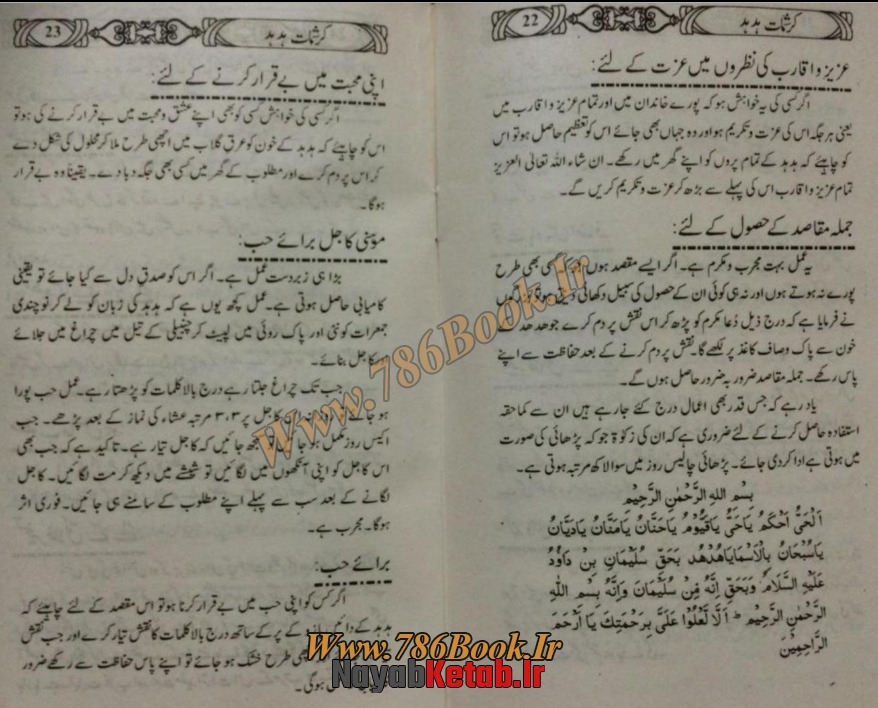 22
کرشمات ہدہد
عزیز و اقارب کی نظروں میں عزت کے لئے:
اگر کسی کی یہ خواہش ہو کہ پورے خاندان میں اور تمام عزیز و اقارب میں
یعنی ہر جگہ اس کی عزت و تکریم ہو اور وہ جہاں بھی جائے اس کو تعظیم حاصل ہو تو اس
کو چاہئے کہ ہدہد کے تمام پروں کو اپنے گھر میں رکھے۔ ان شاء اللہ تعالیٰ العزیز
تمام عزیز و اقارب اس کی پہلے سے بڑھ کر عزت و تکریم کریں گے۔
جملہ مقاصد کے حصول کے لئے:
یہ عمل بہت مجرب و مکرم ہے۔ اگر ایسے مقصد ہوں جو کسی بھی طرح
پورے نہ ہوتے ہوں اور نہ ہی کوئی ان کے حصول کی سبیل دکھائی دیتی ہو تو بزرگوں
نے فرمایا ہے کہ درج ذیل دُعا مکرم کو پڑھ کر اس نقش پر دم کرے جو ھدھد کے
خون سے پاک و صاف کاغذ پر لکھے گا۔ نقش پر دم کرنے کے بعد حفاظت سے اپنے
پاس رکھے۔ جملہ مقاصد ضرور بہ ضرور حاصل ہوں گے۔
یاد رہے کہ جس قدر بھی اعمال درج کئے جا رہے ہیں ان سے کماحقہ
استفادہ حاصل کرنے کے لئے ضروری ہے کہ ان کی زکوٰۃ جو کہ پڑھائی کی صورت
میں ہوتی ہے ادا کر دی جائے۔ پڑھائی چالیس روز میں سوا لاکھ مرتبہ ہوتی ہے۔
بِسْمِ اللهِ الرَّحْمٰنِ الرَّحِيْمِ
اَلْحَىُّ اَحْكَمُ يَاحَىُّ يَاقَيُّوْمُ يَاحَنَّانُ يَامَنَّانُ يَادَيَّانُ
يَاسُبْحَانُ بِالْاَسْمَا يَاهُدْهُد بِحَقِّ سُلَيْمَانَ بِنْ دَاوُدُ
عَلَيْهِ السَّلَامُ وَبِحَقِّ اِنَّهُ مِنْ سُلَيْمَانَ وَاِنَّهُ بِسْمِ اللهِ
الرَّحْمٰنِ الرَّحِيْمِ ط اَلَّا تَعْلُوْا عَلَىَّ بِرَحْمَتِكَ يَا اَرْحَمَ
الرَّاحِمِيْنَ
23
کرشمات ہدہد
اپنی محبت میں بے قرار کرنے کے لئے:
اگر کسی کی خواہش کسی کو بھی اپنے عشق و محبت میں بے قرار کرنے کی ہو تو
اس کو چاہئے کہ ہدہد کے خون کو عرق گلاب میں اچھی طرح ملا کر محلول کی شکل دے
کر اس پر دم کرے اور مطلوب کے گھر میں کسی بھی جگہ دبا دے۔ یقیناً وہ بے قرار
ہوگا۔
موہنی کاجل برائے حب:
بڑا ہی زبردست عمل ہے۔ اگر اس کو صدق دل سے کیا جائے تو یقینی
کامیابی حاصل ہوتی ہے۔ عمل کچھ یوں ہے کہ ہدہد کی زبان کو لے کر نوچندی
جمعرات کو نئی اور پاک روئی میں لپیٹ کر چنبیلی کے تیل میں چراغ میں جلائے
اور کاجل بنائے۔
جب تک چراغ جلتا رہے درج بالا کلمات کو پڑھتا رہے۔ عمل حب پورا
ہو جائے تو روزانہ اس کاجل پر ۳،۳ مرتبہ عشاء کی نماز کے بعد پڑھے۔ جب
اکیس روز مکمل ہو جائیں تو سمجھ جائیں کہ کاجل تیار ہے۔ تاکید ہے کہ جب بھی
اس کاجل کو اپنی آنکھوں میں لگائیں تو شیشے میں دیکھ کر مت لگائیں۔ کاجل
لگانے کے بعد سب سے پہلے اپنے مطلوب کے سامنے ہی جائیں۔ فوری اثر
ہوگا۔ مجرب ہے۔
برائے حب:
اگر کس کو اپنی حب میں بے قرار کرنا ہو تو اس مقصد کے لئے چاہئے کہ
ہدہد کے دائیں بازو کے پر کے ساتھ درج بالا کلمات کا نقش تیار کرے اور جب نقش
بھی طرح خشک ہو جائے تو اپنے پاس حفاظت سے رکھے ضرور
ہوگی۔
Www.786Book.Ir
Www.786Book.Ir
Www.786Book.Ir
NayabKetab.Ir